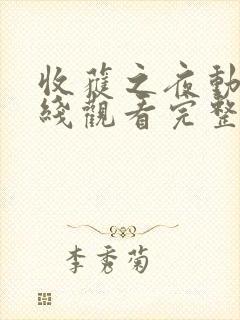 收穫之夜動
綫觀看完整
李秀菊